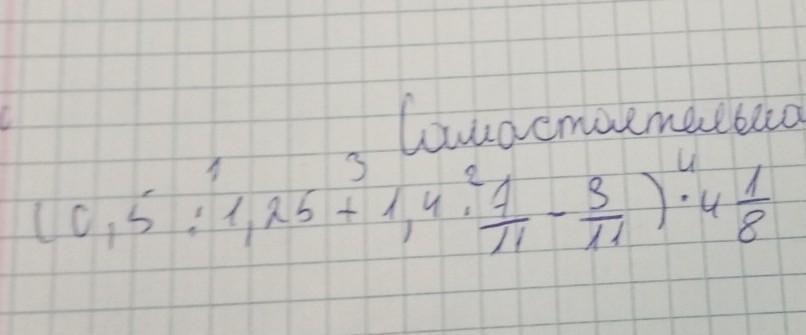 Самостоятельно
1 3 2 4
(0,5 : 1,25 + 1,4 : 7/11 - 3/11) · 4 1/8